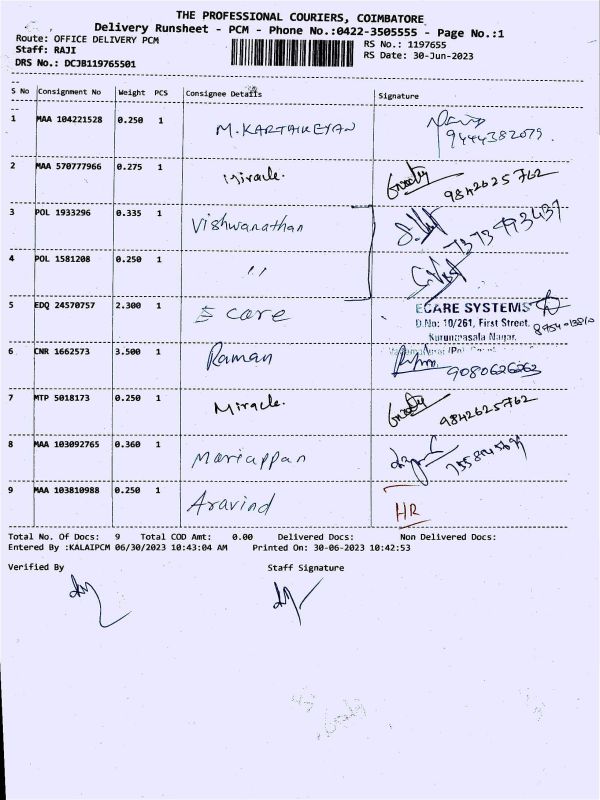 THE PROFESSIONAL COURIERS, COIMBATORE
Delivery Runsheet - PCM - Phone No.:0422-3505555 - Page No.:1
Route: OFFICE DELIVERY PCM
Staff: RAJI
DRS No.: DCJB119765501
RS No.: 1197655
RS Date: 30-Jun-2023
S No Consignment No Weight PCS Consignee Details Signature
1 MAA 104221528 0.250 1 M.KARTHIKEYAN
9444382079
2 MAA 570777966 0.275 1 Miracle. 9842625762
3 POL 1933296 0.335 1 Vishwanathan 7373493437
4 POL 1581208 0.250 1 "
5 EDQ 24570757 2.300 1 E care ECARE SYSTEMS
D.No: 10/261, First Street.
Nagar.
6 CNR 1662573 3.500 1 Raman 9080626263
7 MTP 5018173 0.250 1 Miracle. 9842625762
8 MAA 103092765 0.360 1 Mariappan
9 MAA 103810988 0.250 1 Aravind HR
Total No. Of Docs: 9 Total COD Amt: 0.00 Delivered Docs: Non Delivered Docs:
Entered By :KALAIPCM 06/30/2023 10:43:04 AM Printed On: 30-06-2023 10:42:53
Verified By Staff Signature